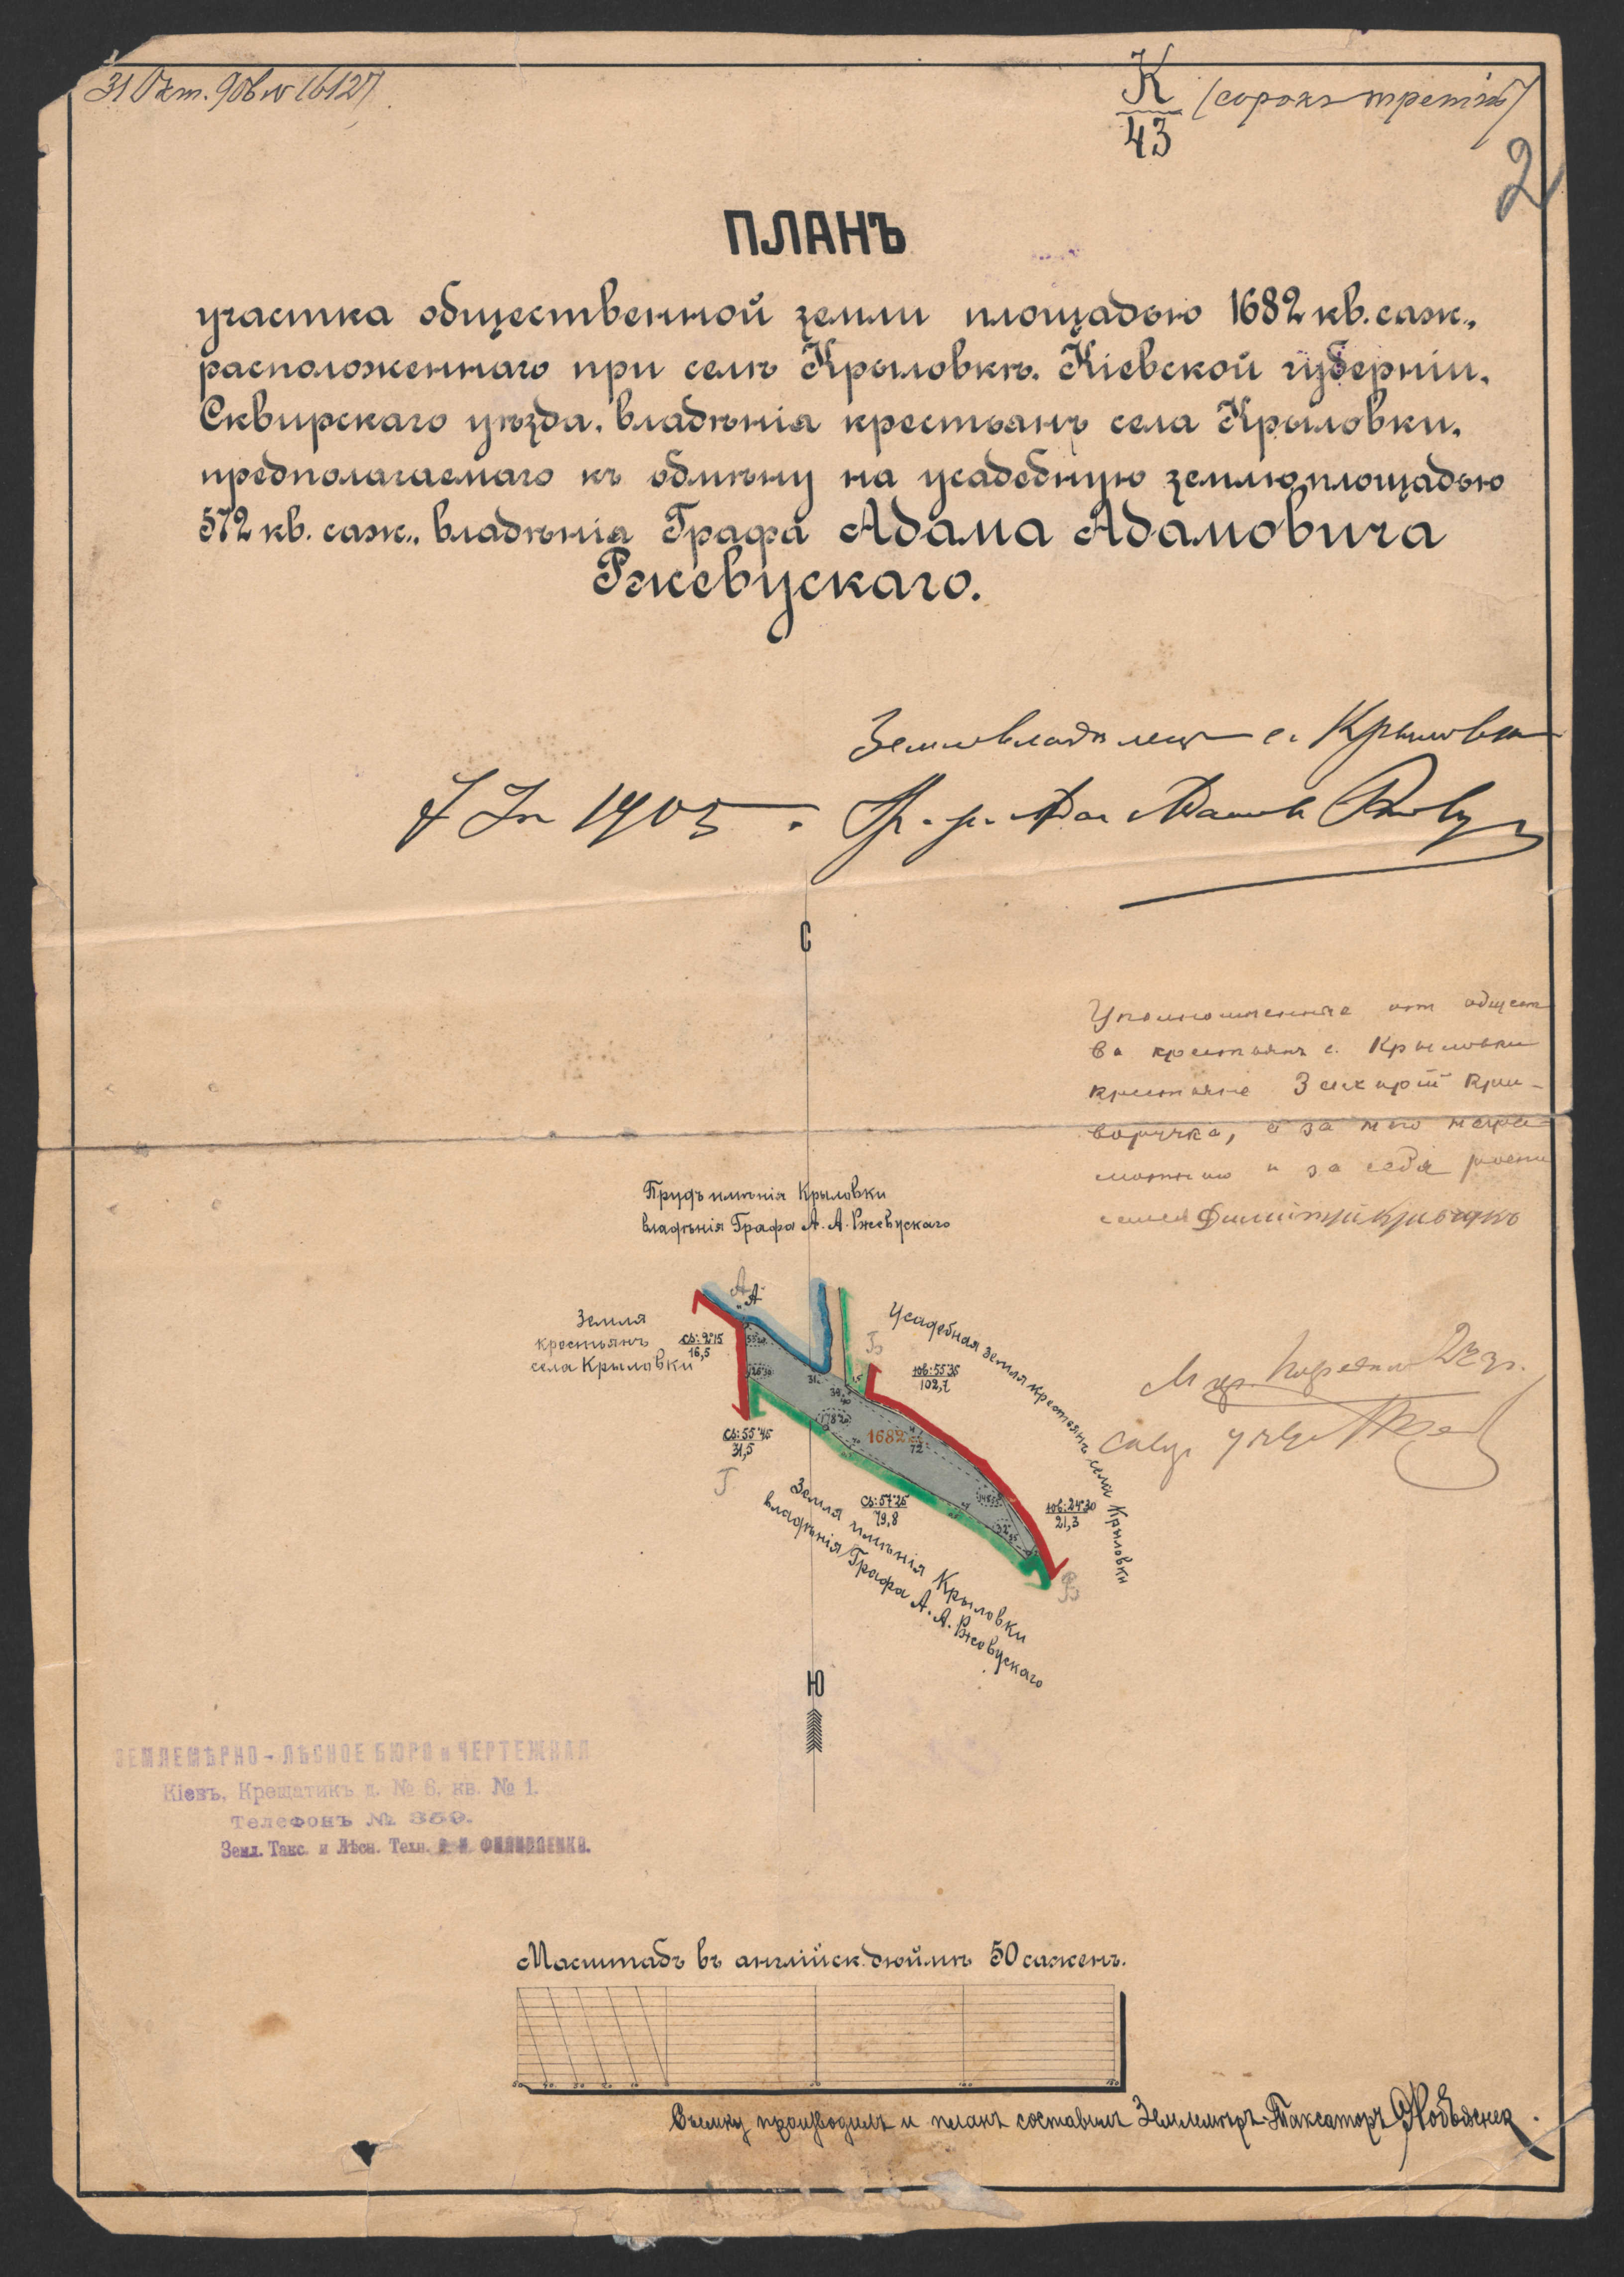 31 Окт. 906 № 16127
К
43
(сорокъ третій)
2
ПЛАНЪ
участка общественной земли площадью 1682 кв. саж.,
расположеннаго при селѣ Крыловкѣ, Кіевской губерніи,
Сквирскаго уѣзда, владѣнія крестьянъ села Крыловки,
предполагаемаго къ обмѣну на усадебную землю площадью
572 кв. саж., владѣнія Графа Адама Адамовича
Ржевускаго.
Землевладѣлецъ с. Крыловки
1905
С
Уполномоченные отъ общест
ва крестьянъ с. Крыловки
крестьяне Захарій Кри-
воручка, а за него негра-
мотнаго и за себя росписался
Димитрій
Прудъ имѣнія Крыловки
владѣнія Графа А. А. Ржевускаго
А
"А"
Земля
крестьянъ
села Крыловки
СВ: 2°15
16,5
Б
ЮВ: 55°35
102,7
Усадебная земля крестьянъ села Крыловки
1682
72
СВ: 55°45
31,5
Г
СВ: 57°25
79,8
ЮВ: 24°30
21,3
В
Земля имѣнія Крыловки
владѣнія Графа А. А. Ржевускаго
Ю
ЗЕМЛЕМѢРНО-ЛѢСНОЕ БЮРО и ЧЕРТЕЖНАЯ
Кіевъ, Крещатикъ д. № 6, кв. № 1.
Телефонъ № 350.
Земл. Такс. и Лѣсн. Техн.
Масштабъ въ англійск. дюймѣ 50 сажень.
Съемку производилъ и планъ составилъ Землемѣръ-Таксаторъ